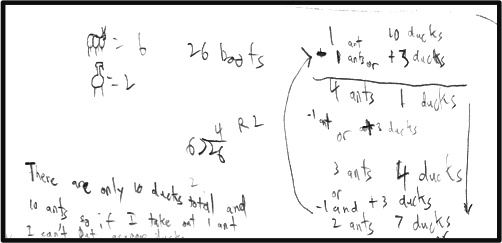 = 6
= 2
26 boots
4 R2
6)26
2
There are only 10 ducks total and
10 ants so if I take out 1 ant
I can't put
1 ant 10 ducks
- 1 ants or +3 ducks
4 ants 1 ducks
-1 ant or +3 ducks
3 ants 4 ducks
or
-1 and +3 ducks
2 ants 7 ducks
or